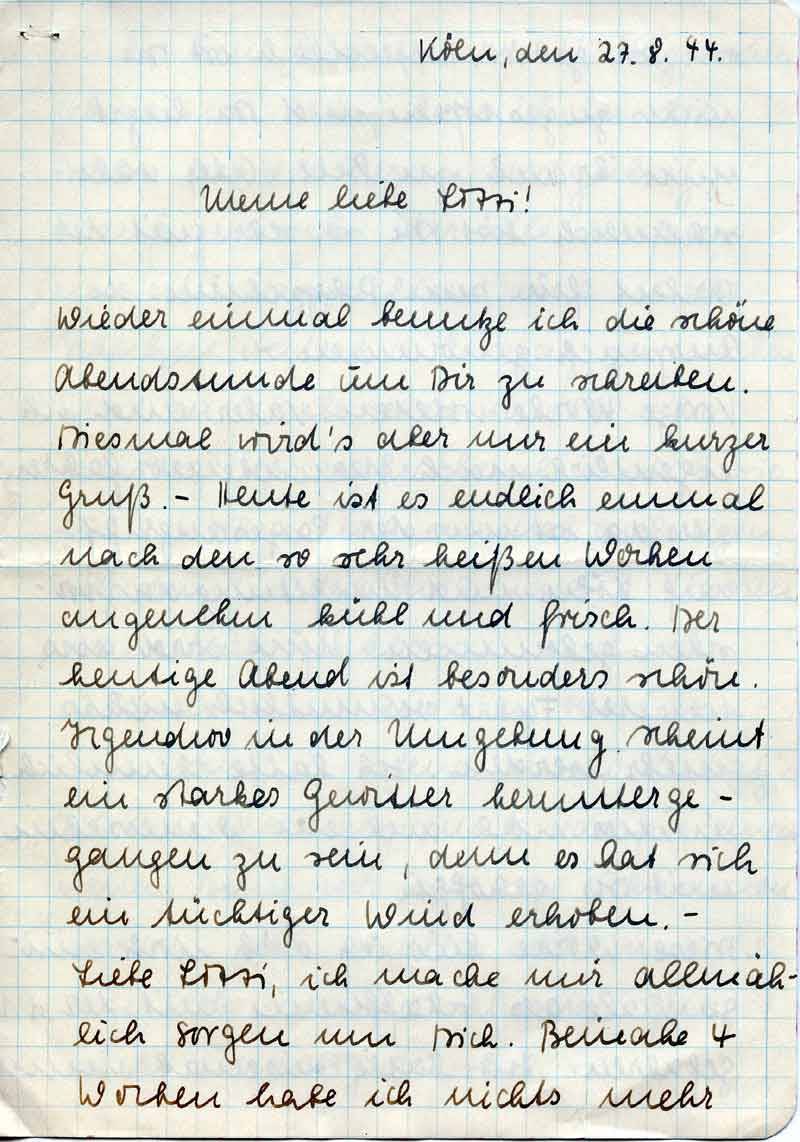 Köln, den 27. 8. 44.
Meine liebe Lizzi!
Wieder einmal benutze ich die schöne
Abendstunde um Dir zu schreiben.
Diesmal wird's aber nur ein kurzer
Gruß. – Heute ist es endlich einmal
nach den so sehr heißen Wochen
angenehm kühl und frisch. Der
heutige Abend ist besonders schön.
Irgendwo in der Umgebung scheint
ein starkes Gewitter herunterge-
gangen zu sein, denn es hat sich
ein tüchtiger Wind erhoben. –
Liebe Lizzi, ich mache mir allmäh-
lich Sorgen um Dich. Beinahe 4
Wochen habe ich nichts mehr